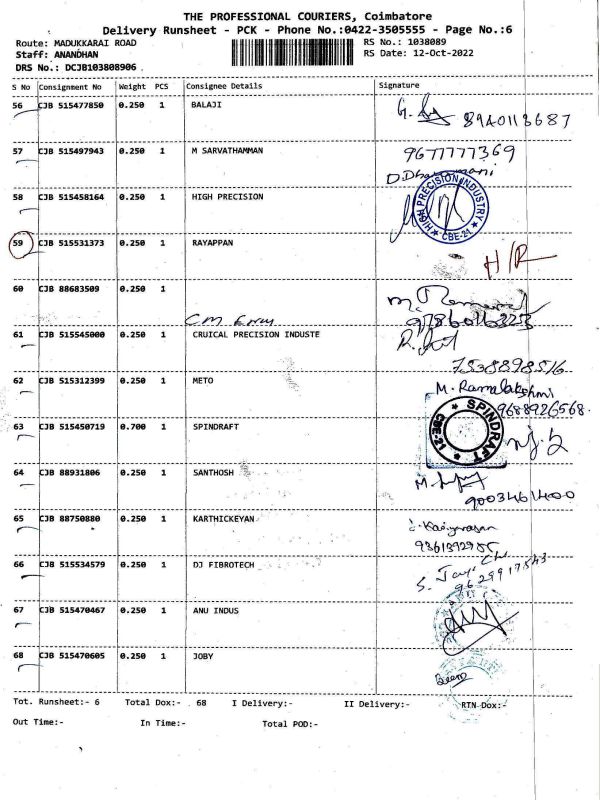 THE PROFESSIONAL COURIERS, Coimbatore
Delivery Runsheet - PCK - Phone No.:0422-3505555 - Page No.:6
Route: MADUKKARAI ROAD RS No.: 1038089
Staff: ANANDHAN RS Date: 12-Oct-2022
DRS No.: DCJB103808906
S No Consignment No Weight PCS Consignee Details Signature
56 CJB 515477850 0.250 1 BALAJI
8940113687
57 CJB 515497943 0.250 1 M SARVATHAMMAN 9677777369
58 CJB 515458164 0.250 1 HIGH PRECISION
HIGH PRECISION INDUSTRY
★ CBE-21 ★
59 CJB 515531373 0.250 1 RAYAPPAN
H/R
60 CJB 88683509 0.250 1
61 CJB 515545000 0.250 1 CRUICAL PRECISION INDUSTE
7538898516
62 CJB 515312399 0.250 1 METO M. Ramalakshmi
9688926568.
63 CJB 515450719 0.700 1 SPINDRAFT
★ SPINDRAFT ★ CBE-21
64 CJB 88931806 0.250 1 SANTHOSH
9003461400
65 CJB 88750880 0.250 1 KARTHICKEYAN
66 CJB 515534579 0.250 1 DJ FIBROTECH
9629917543
67 CJB 515470467 0.250 1 ANU INDUS
68 CJB 515470605 0.250 1 JOBY
Tot. Runsheet:- 6 Total Dox:- 68 I Delivery:- II Delivery:- RTN Dox:-
Out Time:- In Time:- Total POD:-